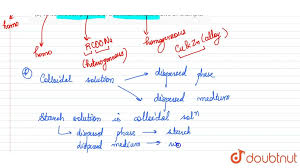 homo
RCOONa
homogeneous
homo
(heterogeneous)
Cu & Zn (alloy)
Colloidal solution → dispersed phase
→ dispersed medium
Starch solution is colloidal solⁿ
→ dispersed phase → starch
dispersed medium →
doubtnut